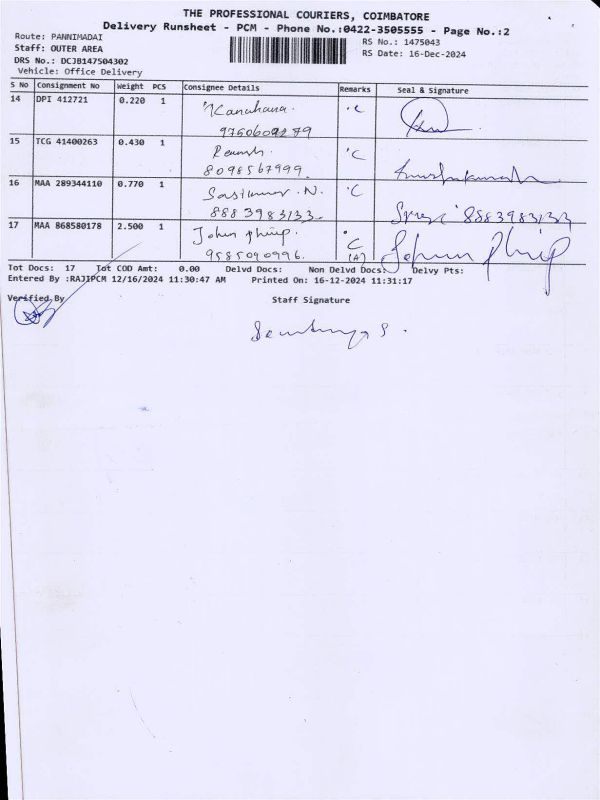 THE PROFESSIONAL COURIERS, COIMBATORE
Delivery Runsheet - PCM - Phone No.:0422-3505555 - Page No.:2
Route: PANNIMADAI
RS No.: 1475043
Staff: OUTER AREA
RS Date: 16-Dec-2024
DRS No.: DCJB147504302
Vehicle: Office Delivery
S No Consignment No Weight PCS Consignee Details Remarks Seal & Signature
14 DPI 412721 0.220 1 C
15 TCG 41400263 0.430 1 C
8098567999
16 MAA 289344110 0.770 1 Sasikumar .N. C
8883983133 8883983133
17 MAA 868580178 2.500 1 John philip. C John Philip
9585090996. (A)
Tot Docs: 17 Tot COD Amt: 0.00 Delvd Docs: Non Delvd Docs: Delvy Pts:
Entered By :RAJIPCM 12/16/2024 11:30:47 AM Printed On: 16-12-2024 11:31:17
Verified By Staff Signature